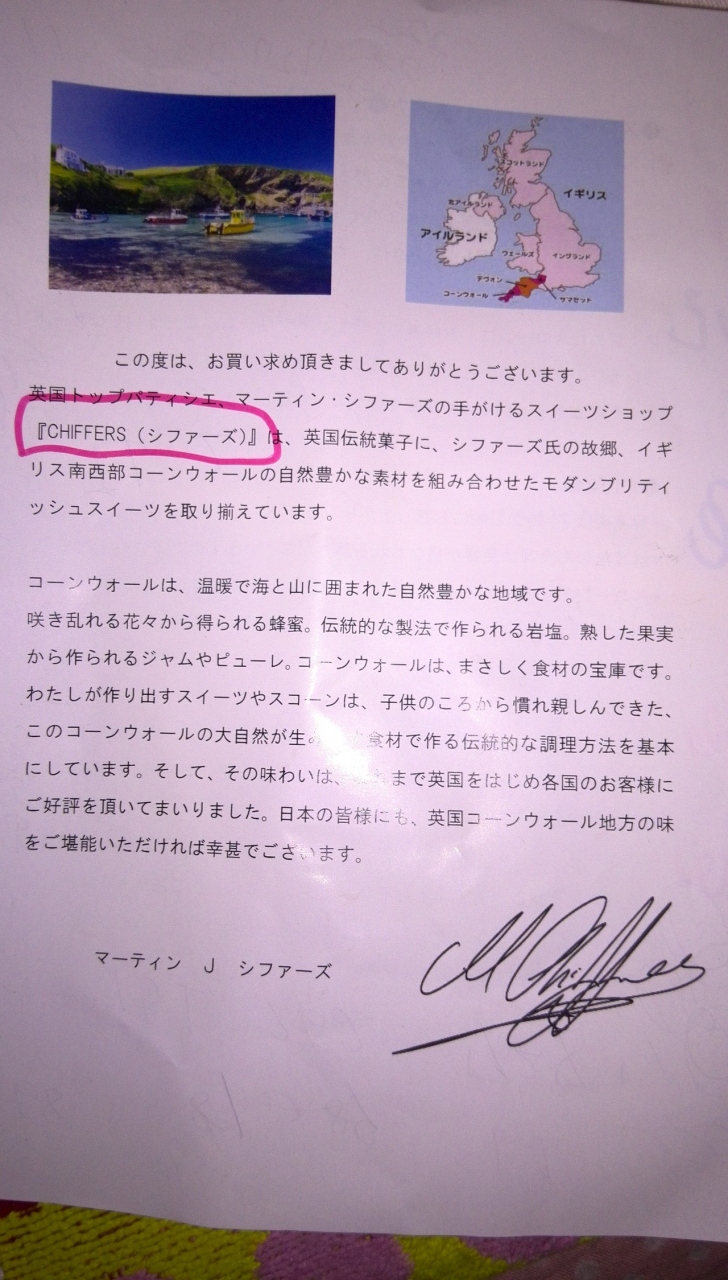 スコットランド
イギリス
北アイルランド
アイルランド
ウェールズ
イングランド
デヴォン
コーンウォール
サマセット
この度は、お買い求め頂きましてありがとうございます。
英国トップパティシエ、マーティン・シファーズの手がけるスイーツショップ
『CHIFFERS（シファーズ）』は、英国伝統菓子に、シファーズ氏の故郷、イギ
リス南西部コーンウォールの自然豊かな素材を組み合わせたモダンブリティ
ッシュスイーツを取り揃えています。
コーンウォールは、温暖で海と山に囲まれた自然豊かな地域です。
咲き乱れる花々から得られる蜂蜜。伝統的な製法で作られる岩塩。熟した果実
から作られるジャムやピューレ。コーンウォールは、まさしく食材の宝庫です。
わたしが作り出すスイーツやスコーンは、子供のころから慣れ親しんできた、
このコーンウォールの大自然が生み 食材で作る伝統的な調理方法を基本
にしています。そして、その味わいは、 まで英国をはじめ各国のお客様に
ご好評を頂いてまいりました。日本の皆様にも、英国コーンウォール地方の味
をご堪能いただければ幸甚でございます。
マーティン J シファーズ
M Chiffers